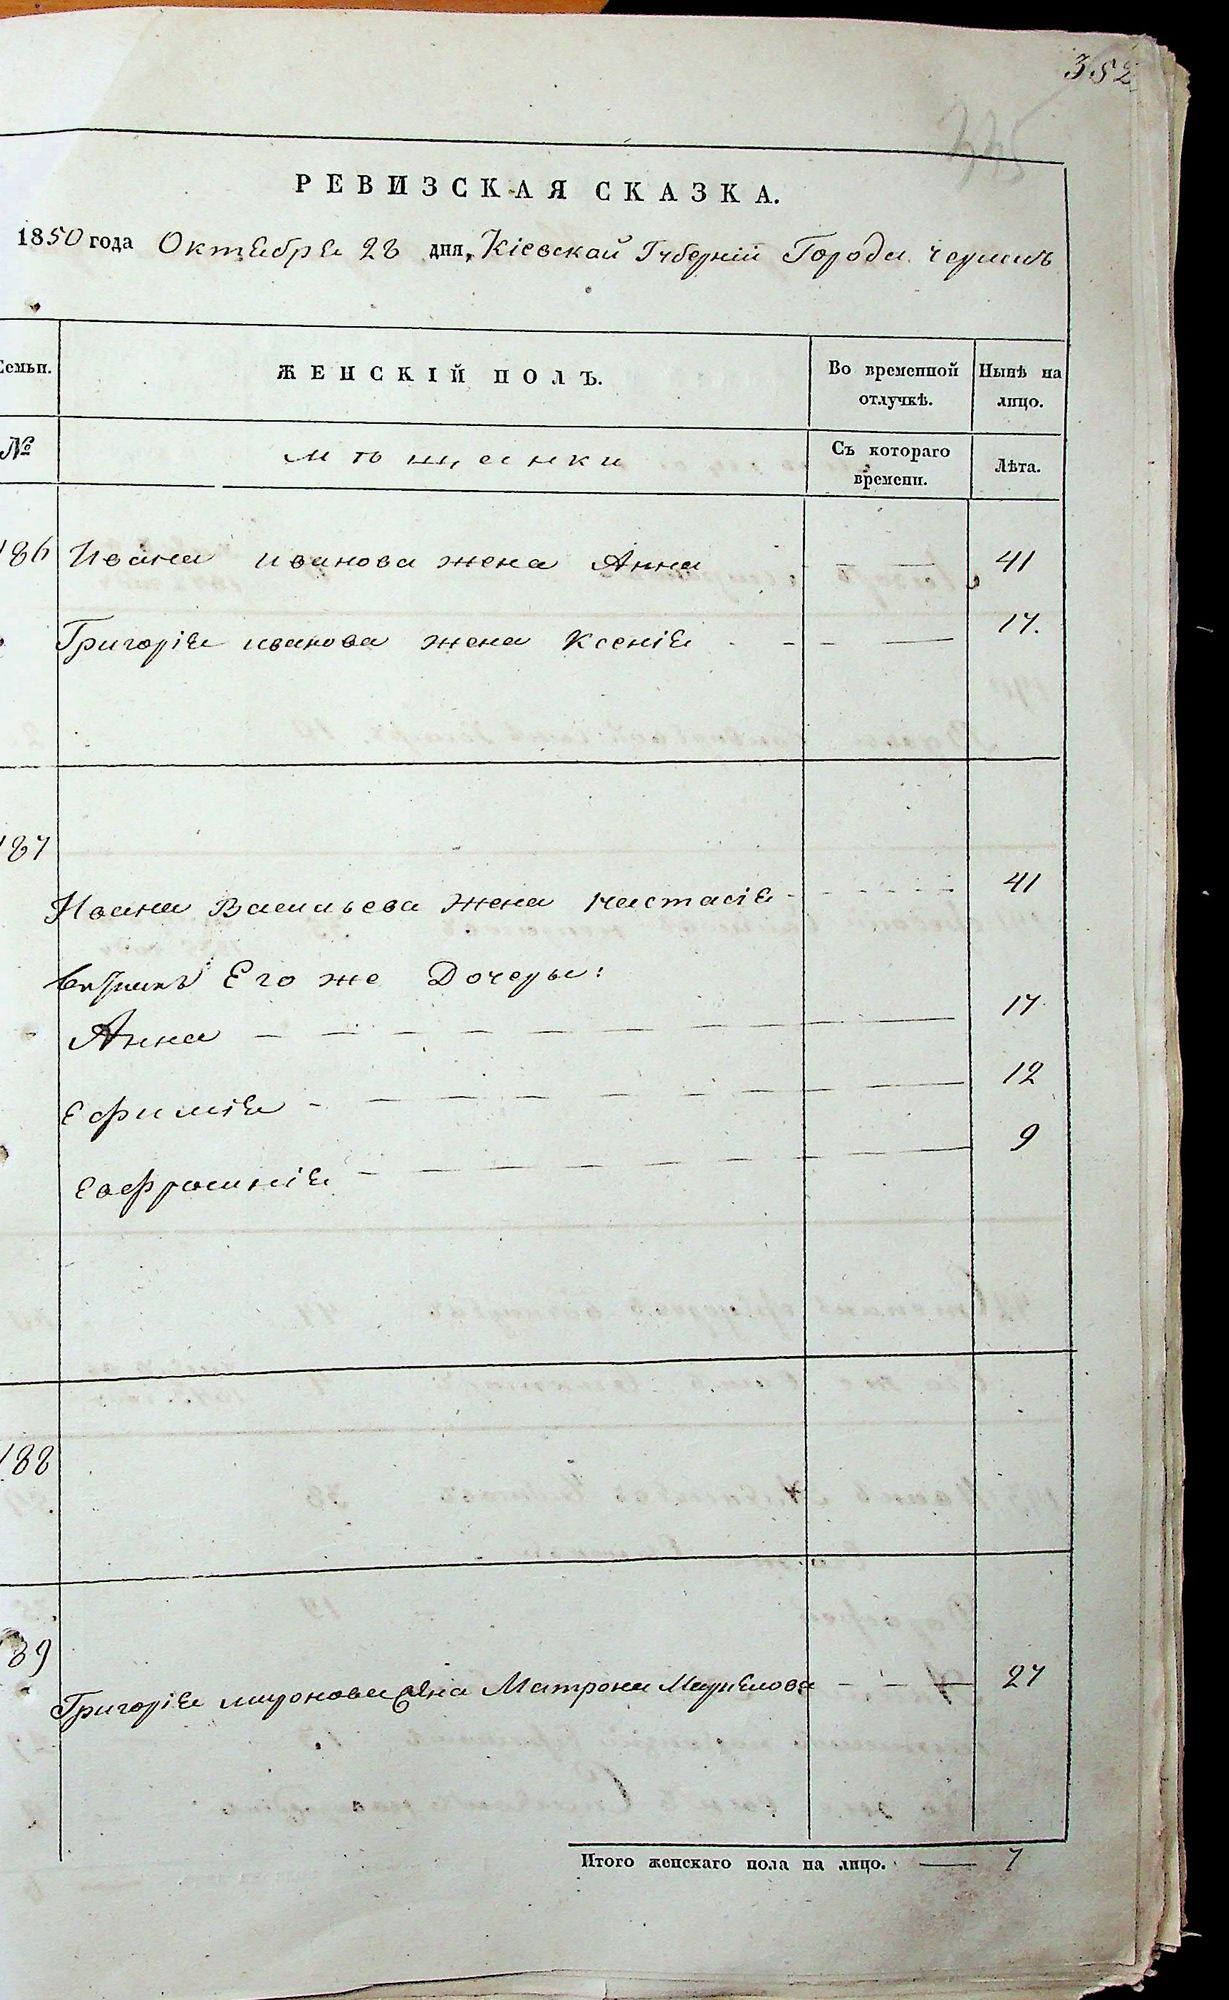 352
335
РЕВИЗСКАЯ СКАЗКА.
1850 года Октября 28 дня, Кіевской Губерніи Города
Семьи. ЖЕНСКІЙ ПОЛЪ. Во временной отлучкѣ. Нынѣ на лицо.
№ мѣщанки Съ котораго времени. Лѣта.
186 Ивана иванова жена Анна 41
Григорія иванова жена Ксенія 17.
187
Ивана Васильева жена Настасія 41
Его же Дочеры:
Анна 17
Ефимія 12
Евфросинія 9
188
189
Григорія миронова Матрона 27
Итого женскаго пола на лицо. — 7